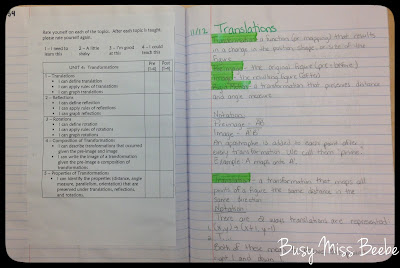 54
Rank yourself on each of the topics. After each topic is taught,
please rank yourself again.
1 – I need to learn this
2 – A little shaky
3 – I'm good at this
4 – I could teach this
UNIT 4: Transformations
Pre (1-4)
Post (1-4)
1 – Translations
I can define translation
I can apply rules of translations
I can graph translations
2 – Reflections
I can define reflection
I can apply rules of reflections
I can graph reflections
3 – Rotations
I can define rotation
I can apply rules of rotations
I can graph rotations
4 – Composition of Transformations
I can describe transformations that occurred
given the pre-image and image
I can write the image of a transformation
given the pre-image and composition of
transformations
5 – Properties of Transformations
I can identify the properties (distance, angle
measure, parallelism, orientation) that are
preserved under translations, reflections,
and rotations.
11/12 Translations
a function (or mapping) that results
in a change in the position, shape, or size of the
figure
the original figure (pre = before)
Image: the resulting figure (after)
a transformation that preserves distance
and angle measure
Notation:
Preimage: AB
Image: A'B'
An apostrophe is added to each point after
every transformation. We call them "prime"
Example: A maps onto A'
a transformation that maps all
points of a figure the same distance in the
same direction
Notation:
There are 2 ways translations are represented
1.
2. T
Both of these
right 1 and down
Busy Miss Beebe